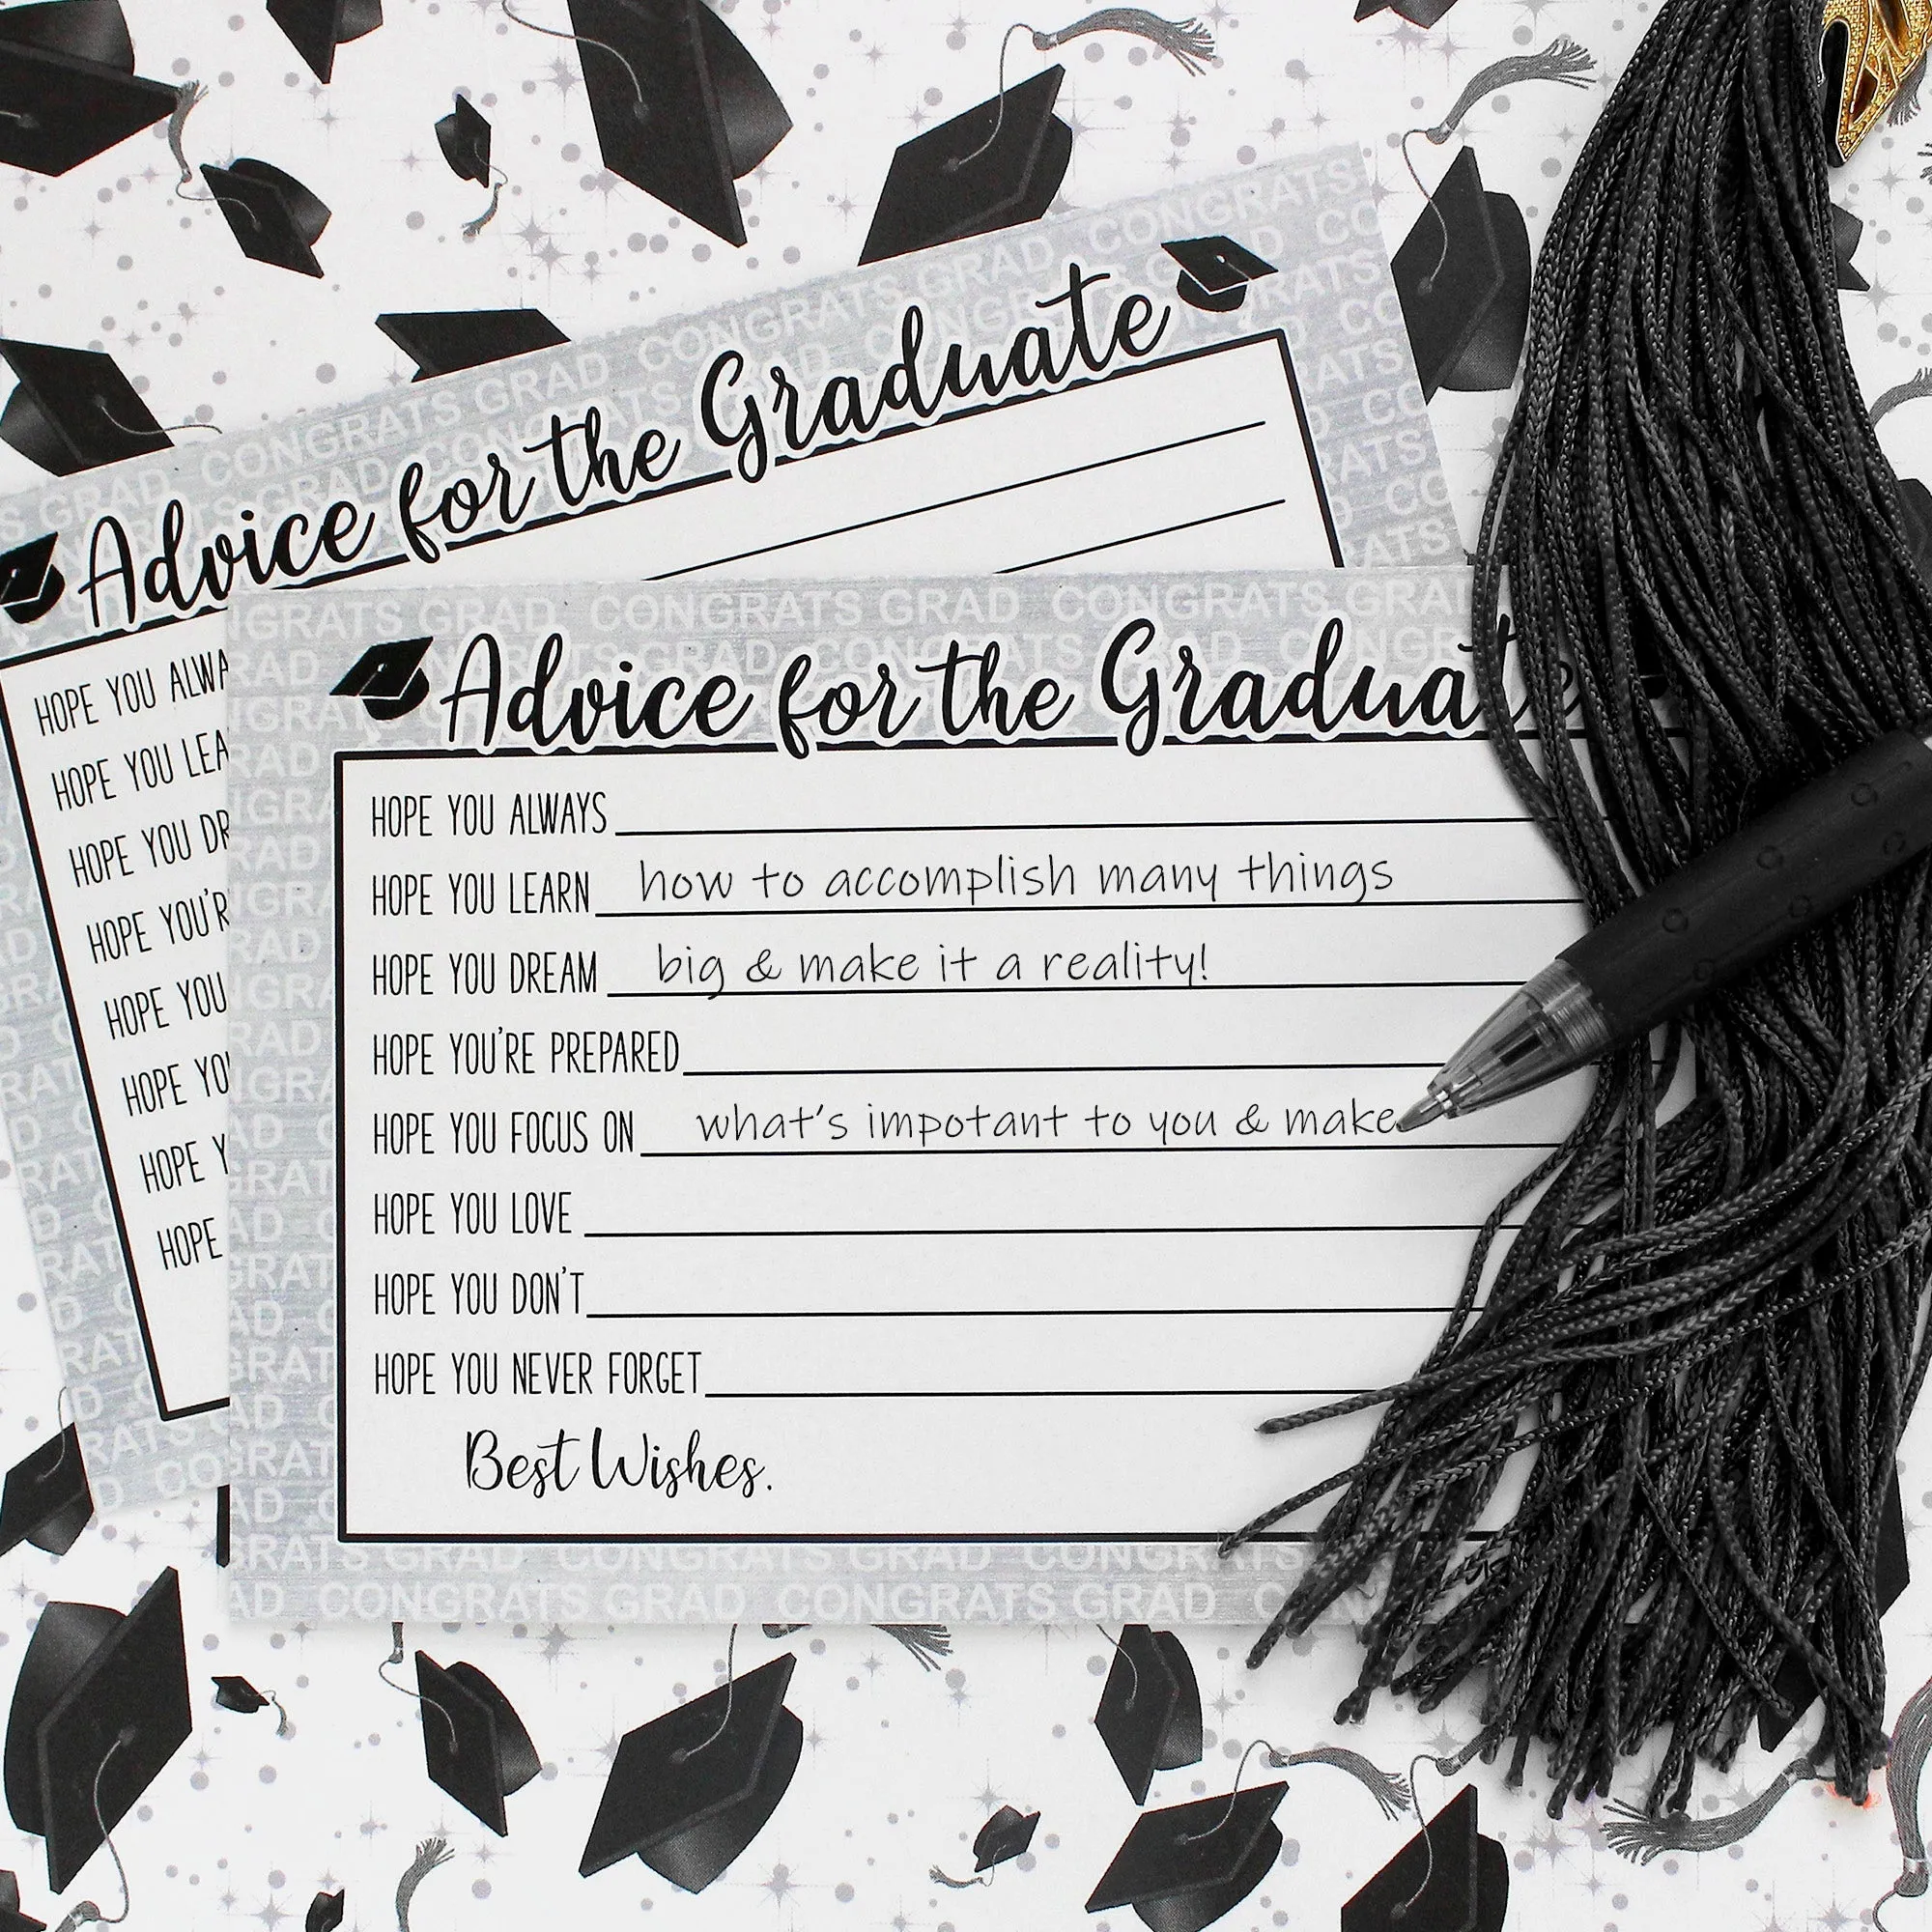 Advice for the Graduate
HOPE YOU
HOPE YOU
HOPE YOU
HOPE
HOPE YOU
HOPE
HOPE
HOPE
CONGRATS GRAD CONGRATS
Advice for the Graduate
HOPE YOU ALWAYS
HOPE YOU LEARN how to accomplish many things
HOPE YOU DREAM big & make it a reality!
HOPE YOU'RE PREPARED
HOPE YOU FOCUS ON what's impotant to you & make
HOPE YOU LOVE
HOPE YOU DON'T
HOPE YOU NEVER FORGET
Best Wishes.
CONGRATS GRAD CONGRATS
CONGRATS GRAD CONGRATS GRAD